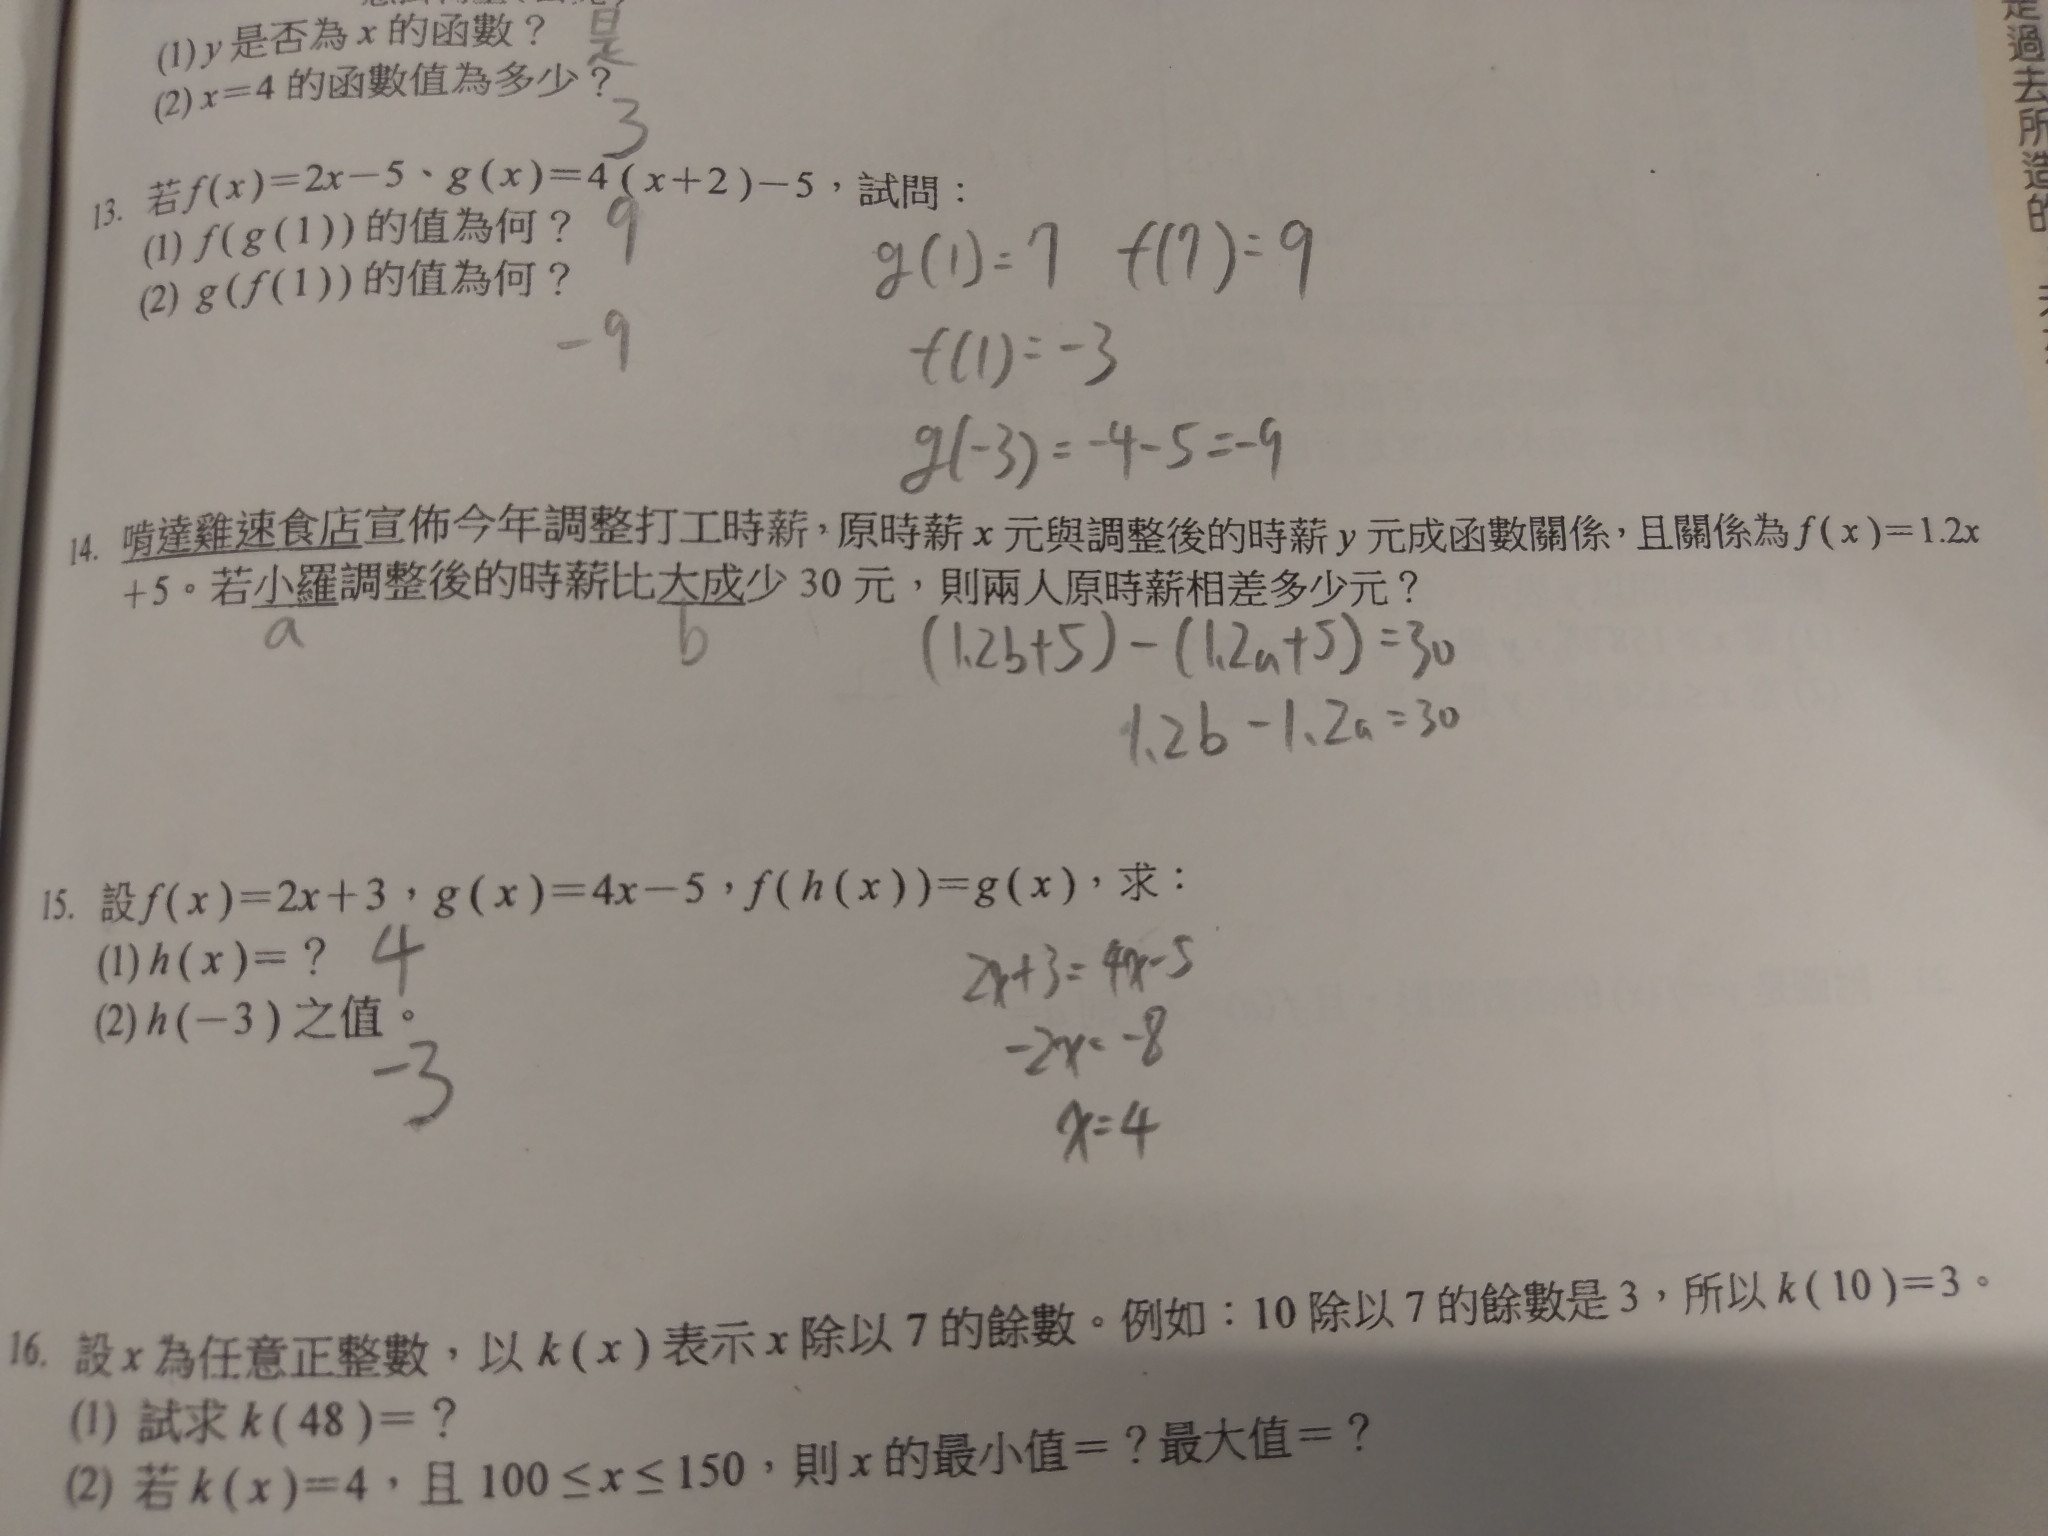 (1) y 是否為 x 的函數？ 是
(2) x=4 的函數值為多少？
3
13. 若 f(x)=2x-5、g(x)=4(x+2)-5，試問：
(1) f(g(1)) 的值為何？ 9
g(1)=7 f(7)=9
(2) g(f(1)) 的值為何？
-9
f(1)=-3
g(-3)=-4-5=-9
14. 啃達雞速食店宣佈今年調整打工時薪，原時薪 x 元與調整後的時薪 y 元成函數關係，且關係為 f(x)=1.2x
+5。若小羅調整後的時薪比大成少 30 元，則兩人原時薪相差多少元？
a b (1.2b+5)-(1.2a+5)=30
1.2b-1.2a=30
15. 設 f(x)=2x+3，g(x)=4x-5，f(h(x))=g(x)，求：
(1) h(x)=？ 4
2x+3=4x-5
(2) h(-3) 之值。
-3
-2x=-8
x=4
16. 設 x 為任意正整數，以 k(x) 表示 x 除以 7 的餘數。例如：10 除以 7 的餘數是 3，所以 k(10)=3。
(1) 試求 k(48)=？
(2) 若 k(x)=4，且 100≤x≤150，則 x 的最小值=？最大值=？
過去所造的